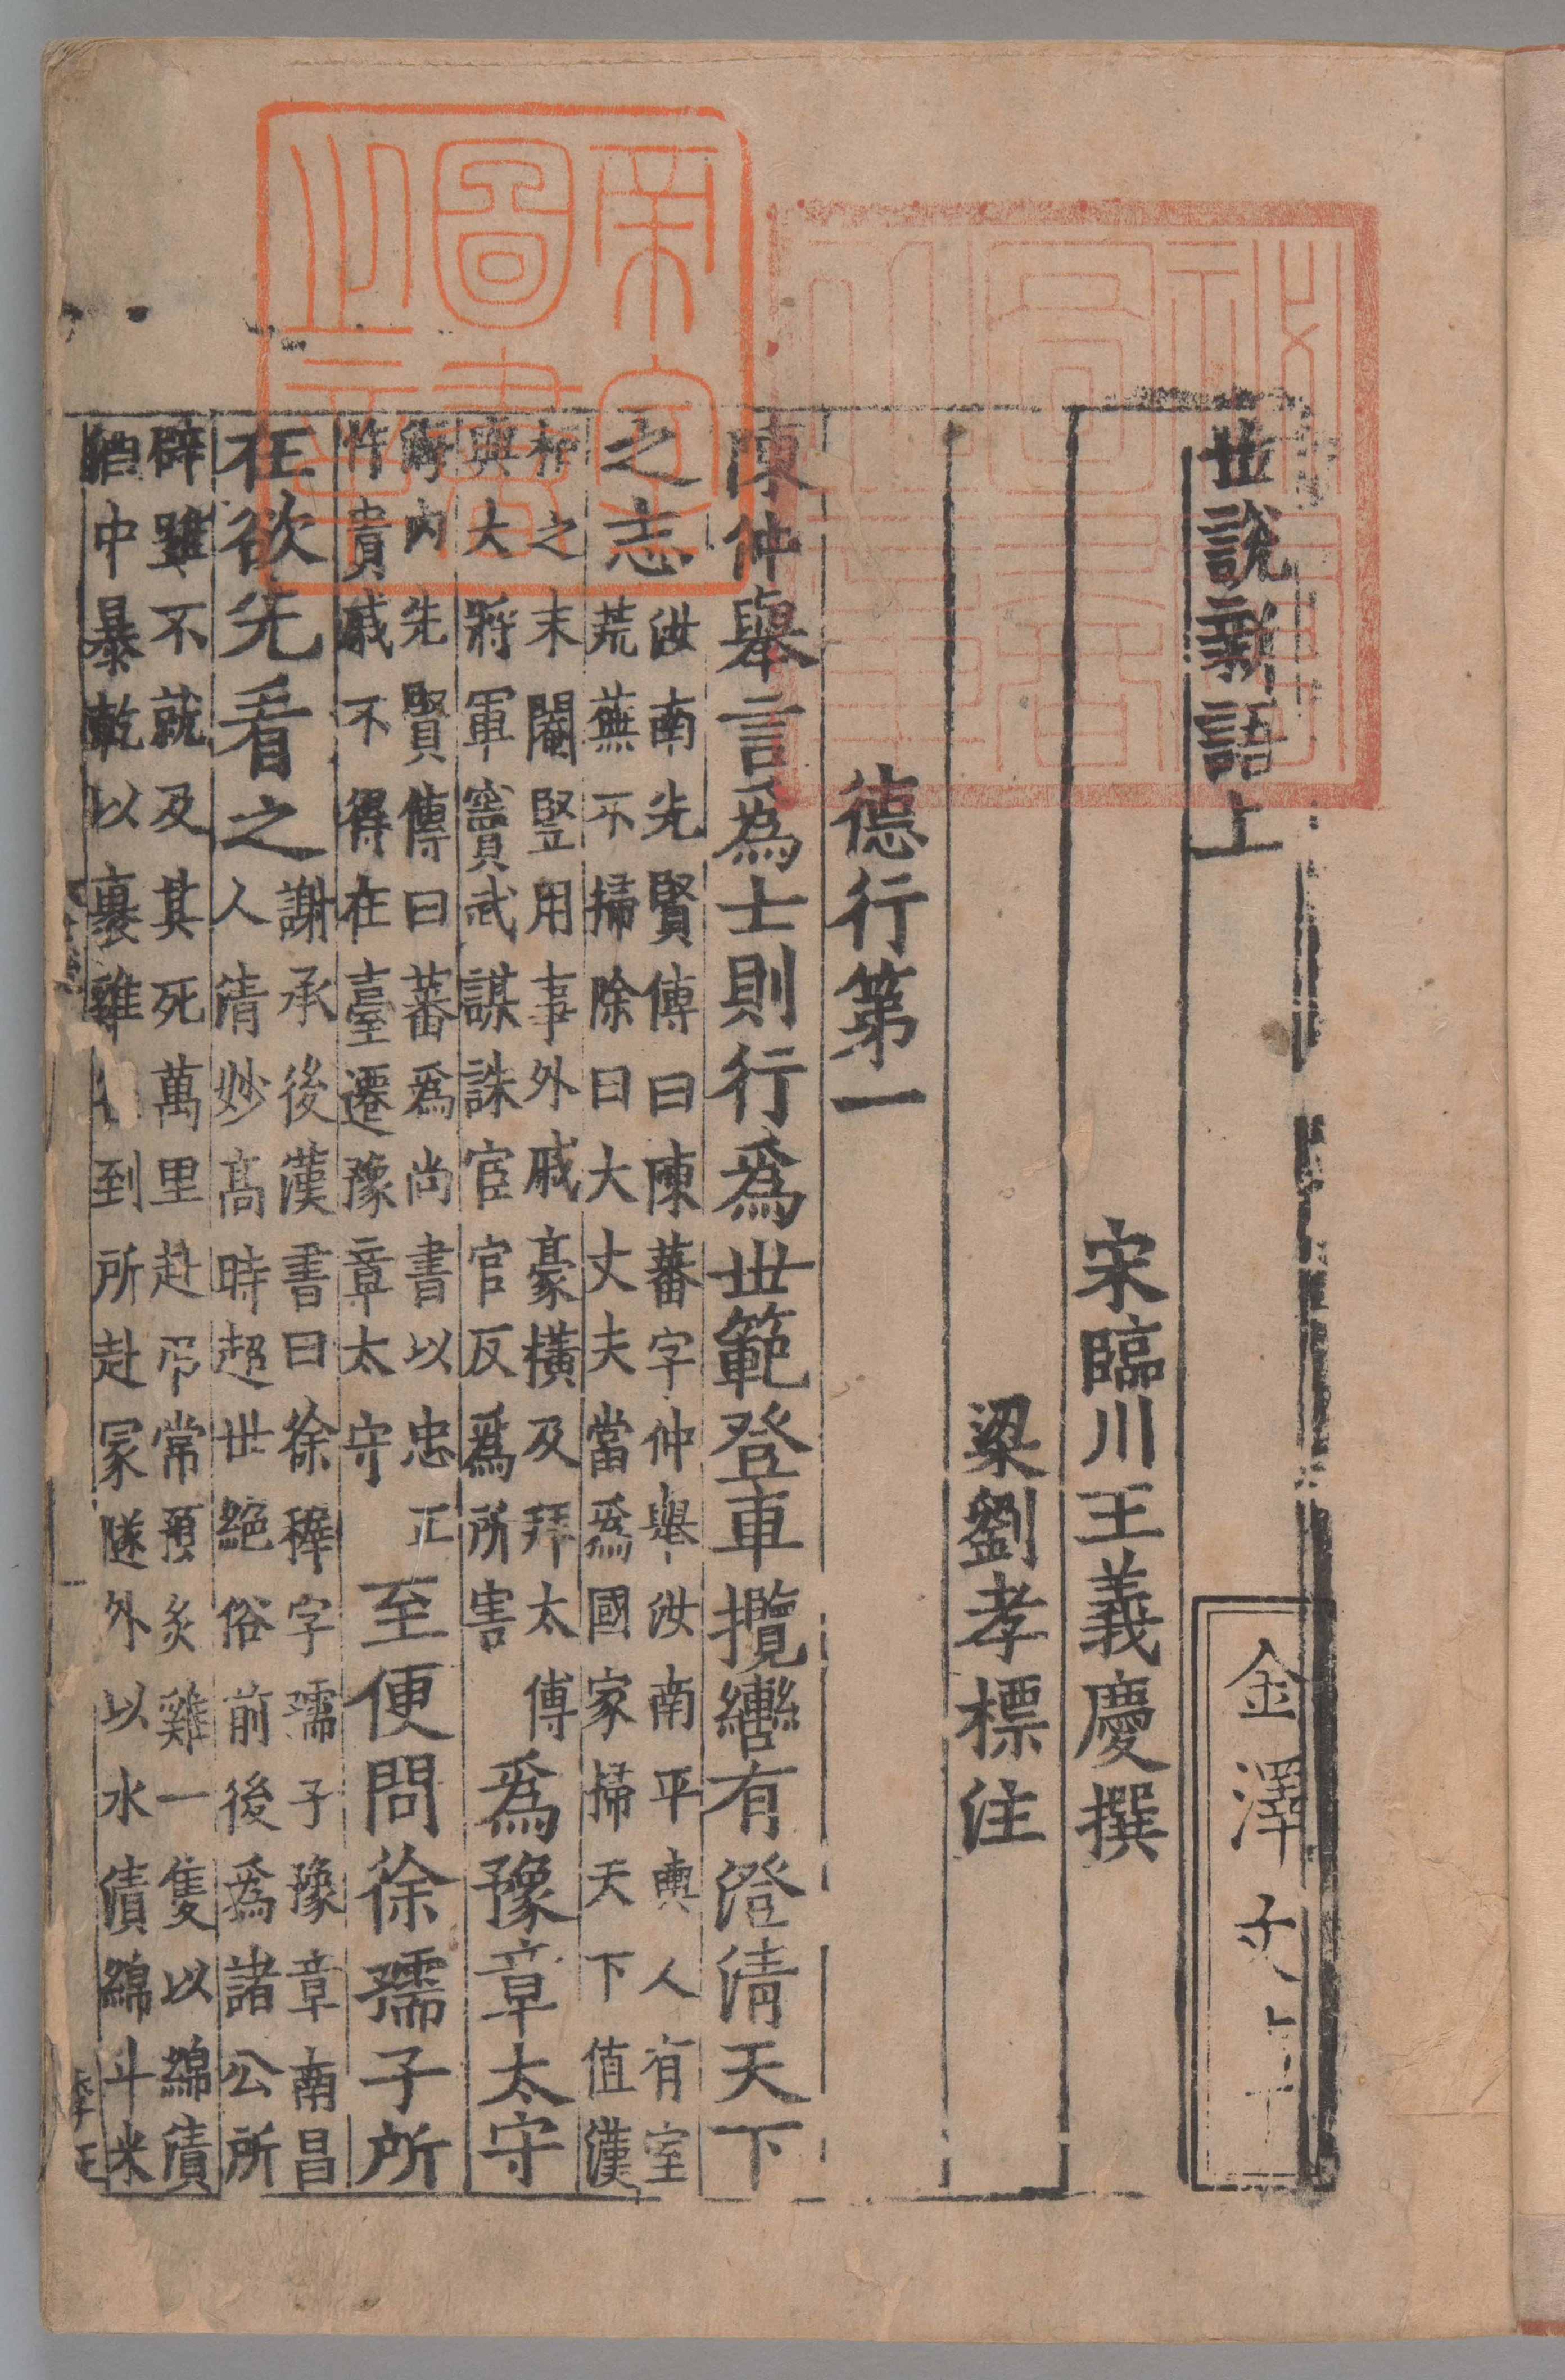 世說新語上
宋臨川王義慶撰
梁劉孝標注
德行第一
陳仲舉言為士則行為世範登車攬轡有澄清天下
之志
汝南先賢傳曰陳蕃字仲舉汝南平輿人有室
荒蕪不掃除曰大丈夫當為國家掃天下值漢
桓之末閹豎用事外戚豪橫及拜太傅
與大將軍竇武謀誅宦官反為所害
為豫章太守
海內先賢傳曰蕃為尚書以忠正
忤貴戚不得在臺遷豫章太守
至便問徐孺子所
在欲先看之
謝承後漢書曰徐穉字孺子豫章南昌
人清妙高時超世絕俗前後為諸公所
辟雖不就及其死萬里赴弔常預炙雞一隻以綿漬
酒中暴乾以裹雞到所赴冢隧外以水漬綿斗米
金澤文
帝室圖書之章